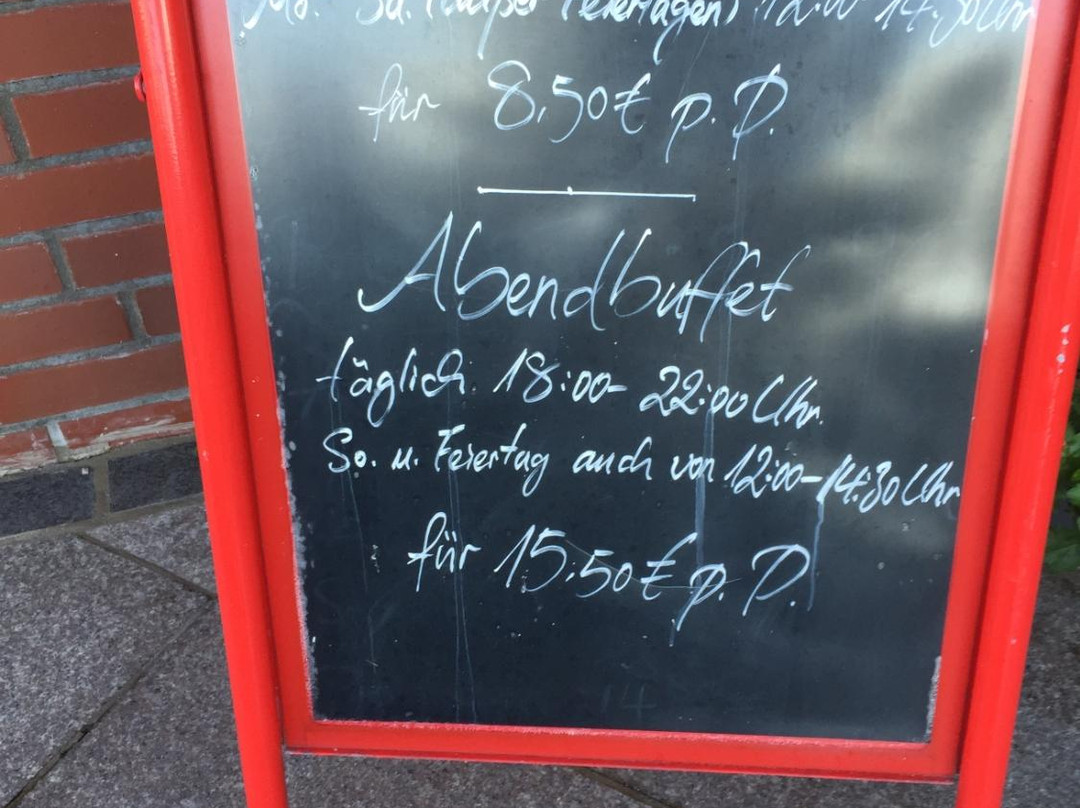 Mo. Sa. (außer Feiertagen) 12:00 14:30 Uhr
für 8,50€ p. P.
Abendbuffet
täglich 18:00- 22:00 Uhr.
So. u. Feiertag auch von 12:00-14:30 Uhr
für 15,50€ p. P.